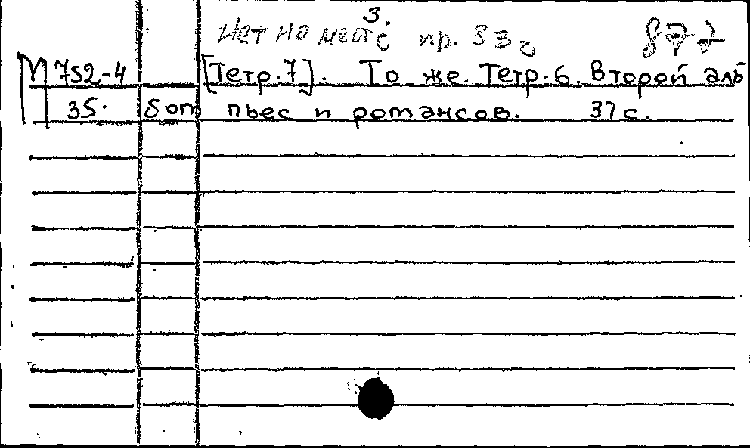 3.
Нет на месте пр. 83г 872
М 752-4 [Тетр. 7]. То же. Тетр. 6. Второй альб
35. б от пьес и романсов. 37 с.